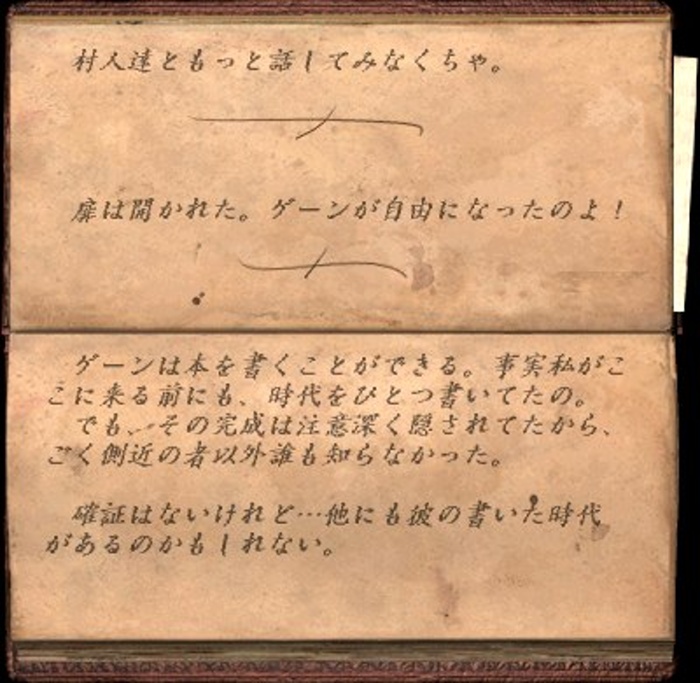 村人達ともっと話してみなくちゃ。
扉は開かれた。ゲーンが自由になったのよ！
ゲーンは本を書くことができる。事実私がこ
こに来る前にも、時代をひとつ書いてたの。
でも、その完成は注意深く隠されてたから、
ごく側近の者以外誰も知らなかった。
確証はないけれど…他にも彼の書いた時代
があるのかもしれない。